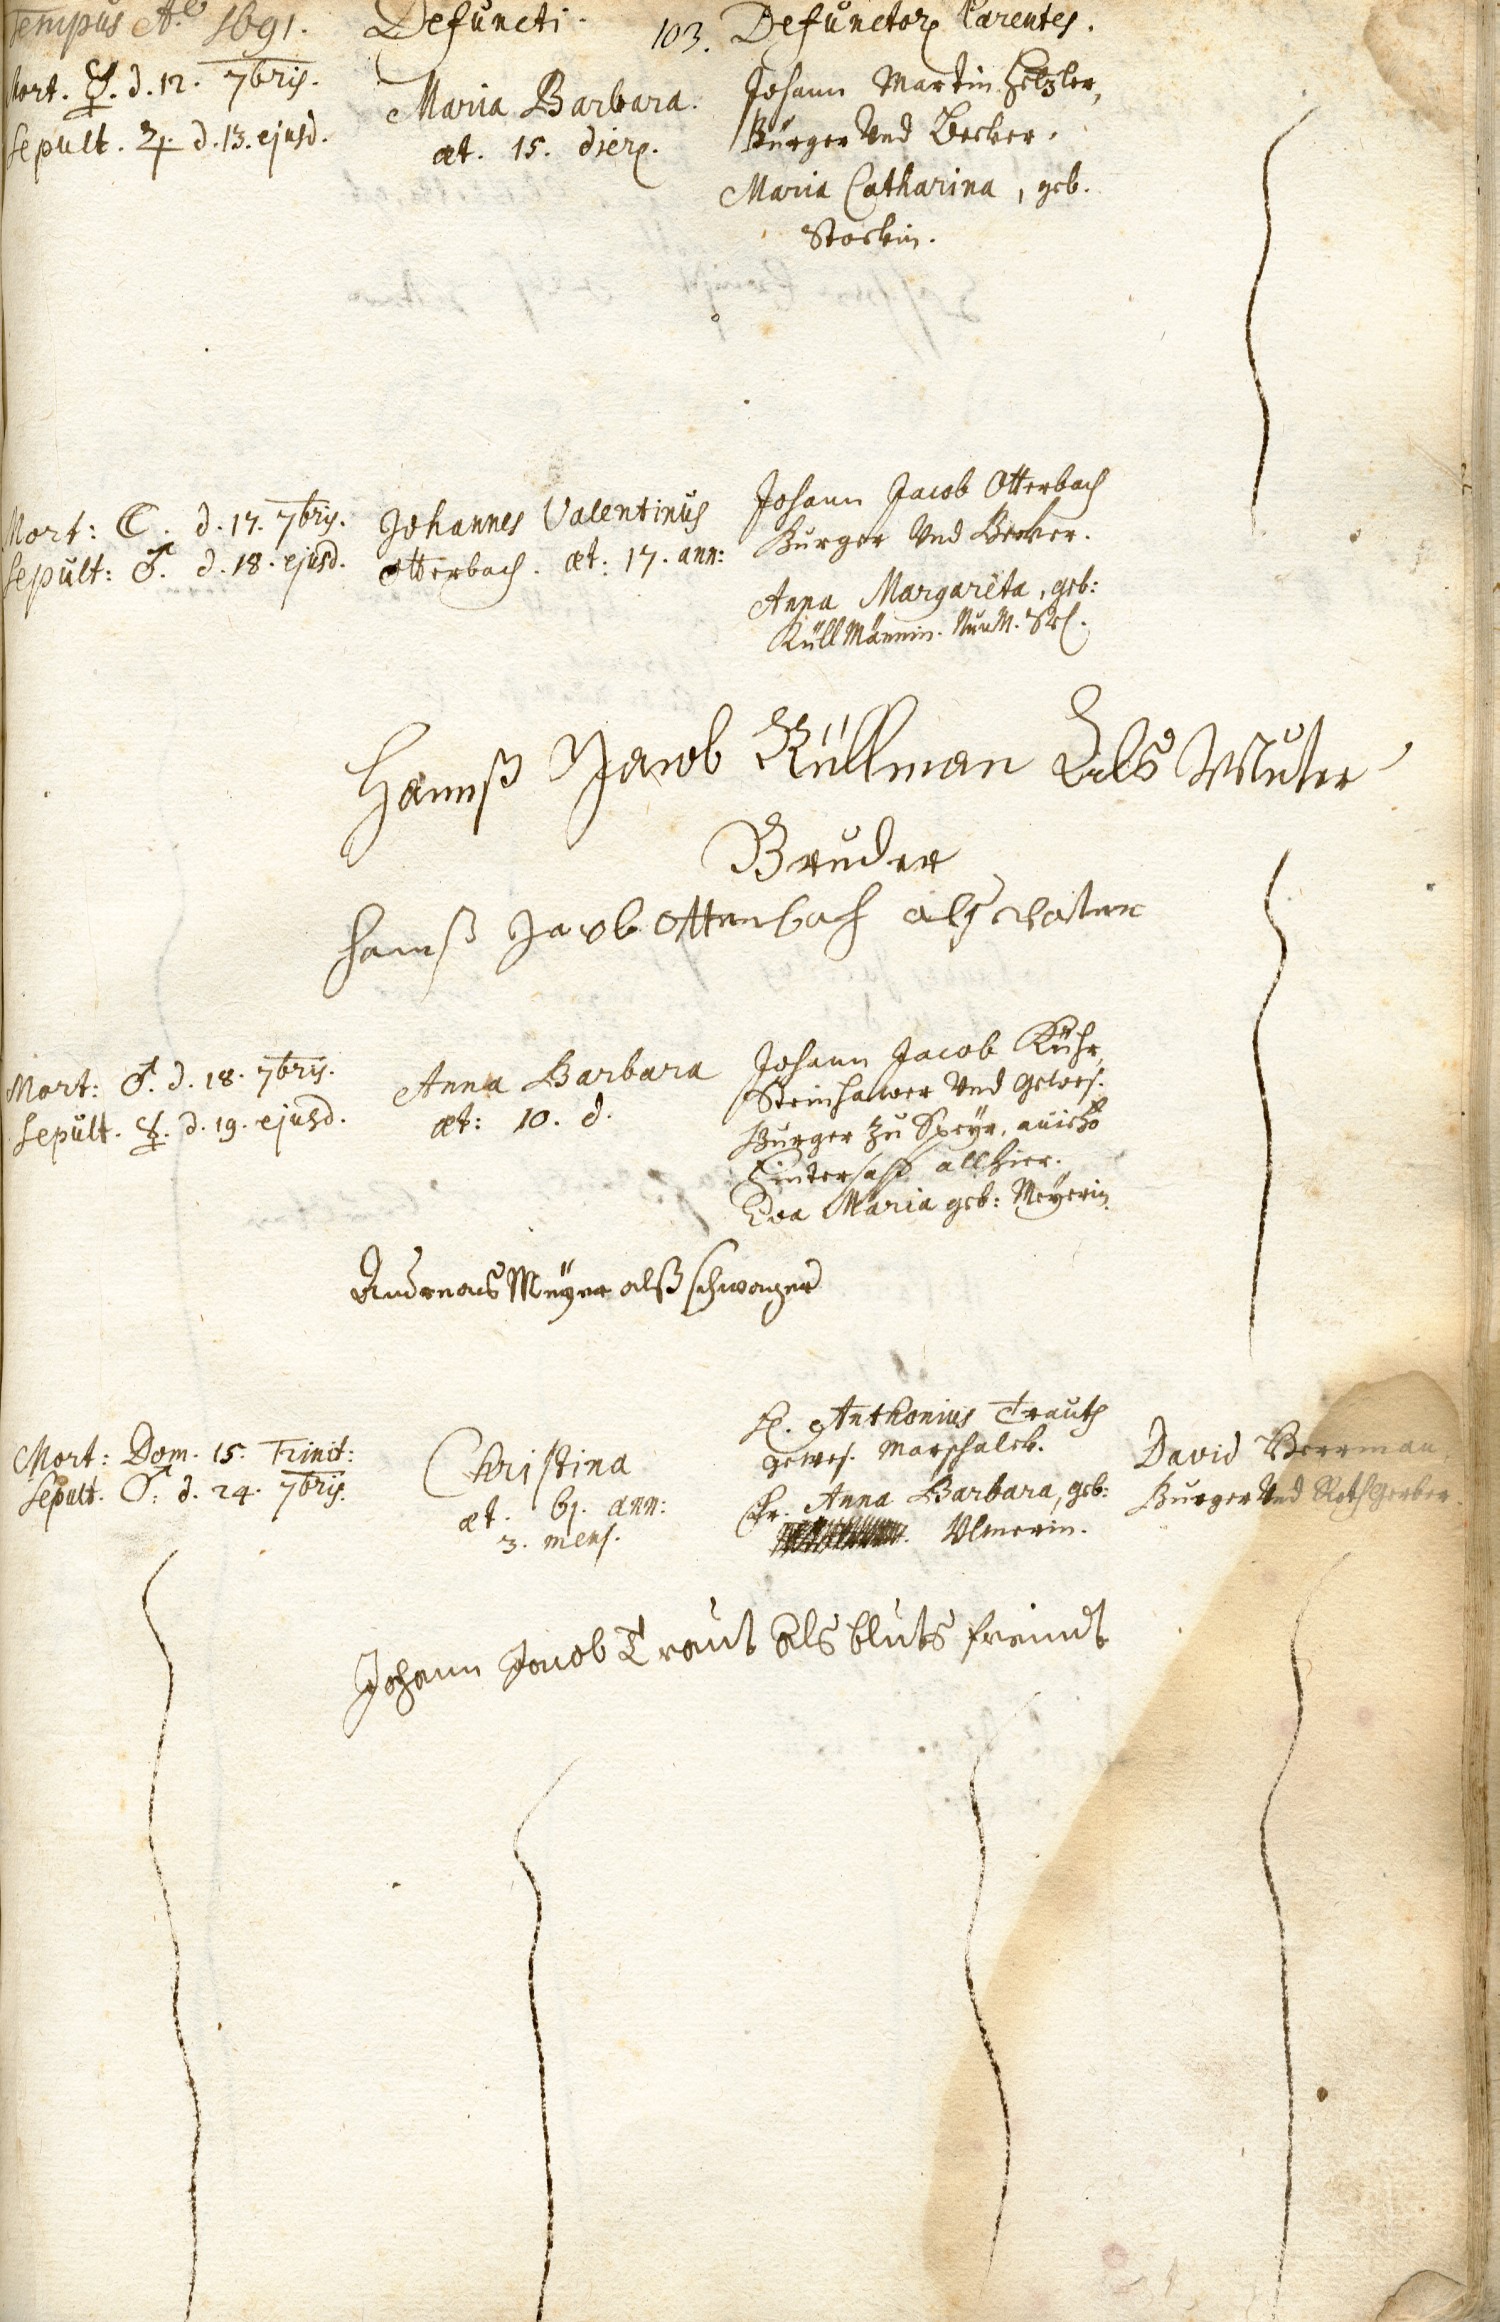 Tempus Aô. 1691. Defuncti. 103. Defunctor. Parentes.
Mort. ☿. d. 12. 7bris.
Sepult. ♃. d. 13. ejusd.
Maria Barbara.
æt. 15. dier.
Johann Martin Hetzler,
Burger Und Becker.
Maria Catharina, geb.
Stockin.
Mort: ☾. d. 17. 7bris.
Sepult: ♂. d. 18. ejusd.
Johannes Valentinus
Otterbach. æt: 17. ann:
Johann Jacob Otterbach
Burger Und Becker.
Anna Margareta, geb:
KüllMännin. Nun. Sel.
Hannß Jacob Küllman Als Muter
Bruder
Hanß Jacob Otterbach alß Vatter
Mort: ♂. d. 18. 7bris.
Sepult. ☿. d. 19. ejusd.
Anna Barbara
æt: 10. d.
Johann Jacob Kühr,
Steinhawer Und gewes.
Burger zu Speyr, anietzo
Hintersaß allhier.
Eva Maria geb: Meyerin.
Andreas Meÿer alß schwager
Mort: Dom. 15. Trinit:
Sepult. ♂: d. 24. 7bris.
Christina
æt. 61. ann:
3. mens.
H. Anthonius Trauth
gewes. Marschalck.
Fr. Anna Barbara, geb:
Ulmerin.
David Beerman,
Burger Und Rothgerber.
Johann Jacob Traut Als bluts freindt